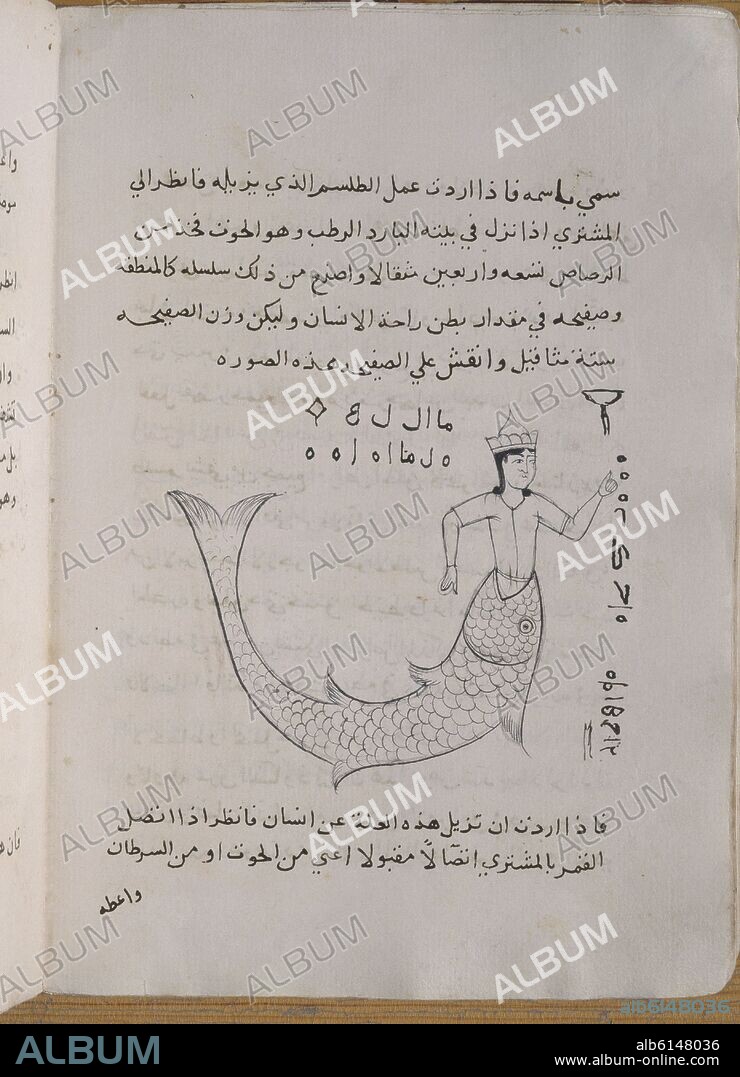 سمي باسمه فاذا اردت عمل الطلسم الذي يزيله فانظر الي
المشتري اذا نزل في بيته البارد الرطب وهو الحوت فخذ من
الرصاص تسعه واربعين مثقالا واصنع من ذلك سلسله كالمنطقه
وصفيحه في مقدار بطن راحة الانسان وليكن وزن الصفيحه
ستة مثاقيل وانقش علي الصفيحه هذه الصوره
فاذا اردت ان تزيل هذه العلة عن انسان فانظر اذا اتصل
القمر بالمشتري اتصالاً مقبولا اعني من الحوت او من السرطان
واعطه
ALBUM
alb6148036
ALBUM
alb6148036
www.album-online.com